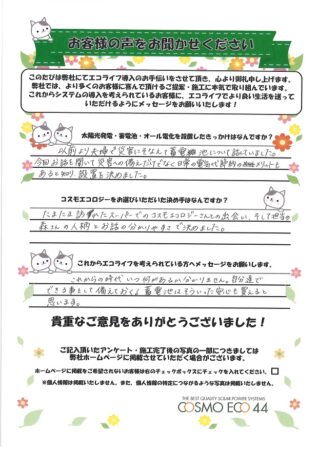 お客様の声をお聞かせください
このたびは弊社にてエコライフ導入のお手伝いをさせて頂き、心より御礼申し上げます。
弊社では、より多くのお客様に喜んで頂けるご提案・施工に本気で取り組んでいます。
これからシステムの導入を考えられているお客様に、エコライフでより良い生活を送って
いただけるようにメッセージをお願いいたします！
太陽光発電・蓄電池・オール電化を設置したきっかけはなんですか？
以前より夫婦で災害にそなえて蓄電池について話していました。
今回お話を聞いて災害への備えだけでなく日常の電気代節約のメリットも
あると知り、設置を決めました。
コスモエコロジーをお選びいただいた決め手はなんですか？
たまたま訪れたスーパーでのコスモエコロジーさんとの出会い、そして担当の
森さんの人柄とお話の分かりやすさで決めました。
これからエコライフを考えられている方へメッセージをお願いします。
これからの時代いつ何があるか分かりません。自分達で
できる事として備えておく、蓄電池はそういった安心も買えると
思います。
貴重なご意見をありがとうございました！
ご記入頂いたアンケート・施工完了後の写真の一部につきましては
弊社ホームページに掲載させていただく場合がございます。
ホームページに掲載をご希望されないお客様は右のチェックボックスにチェックを入れてください。
※個人情報は掲載いたしません。また、個人情報の特定につながるような写真は掲載いたしません。
THE BEST QUALITY SOLAR POWER SYSTEMS
COSMO ECO 44